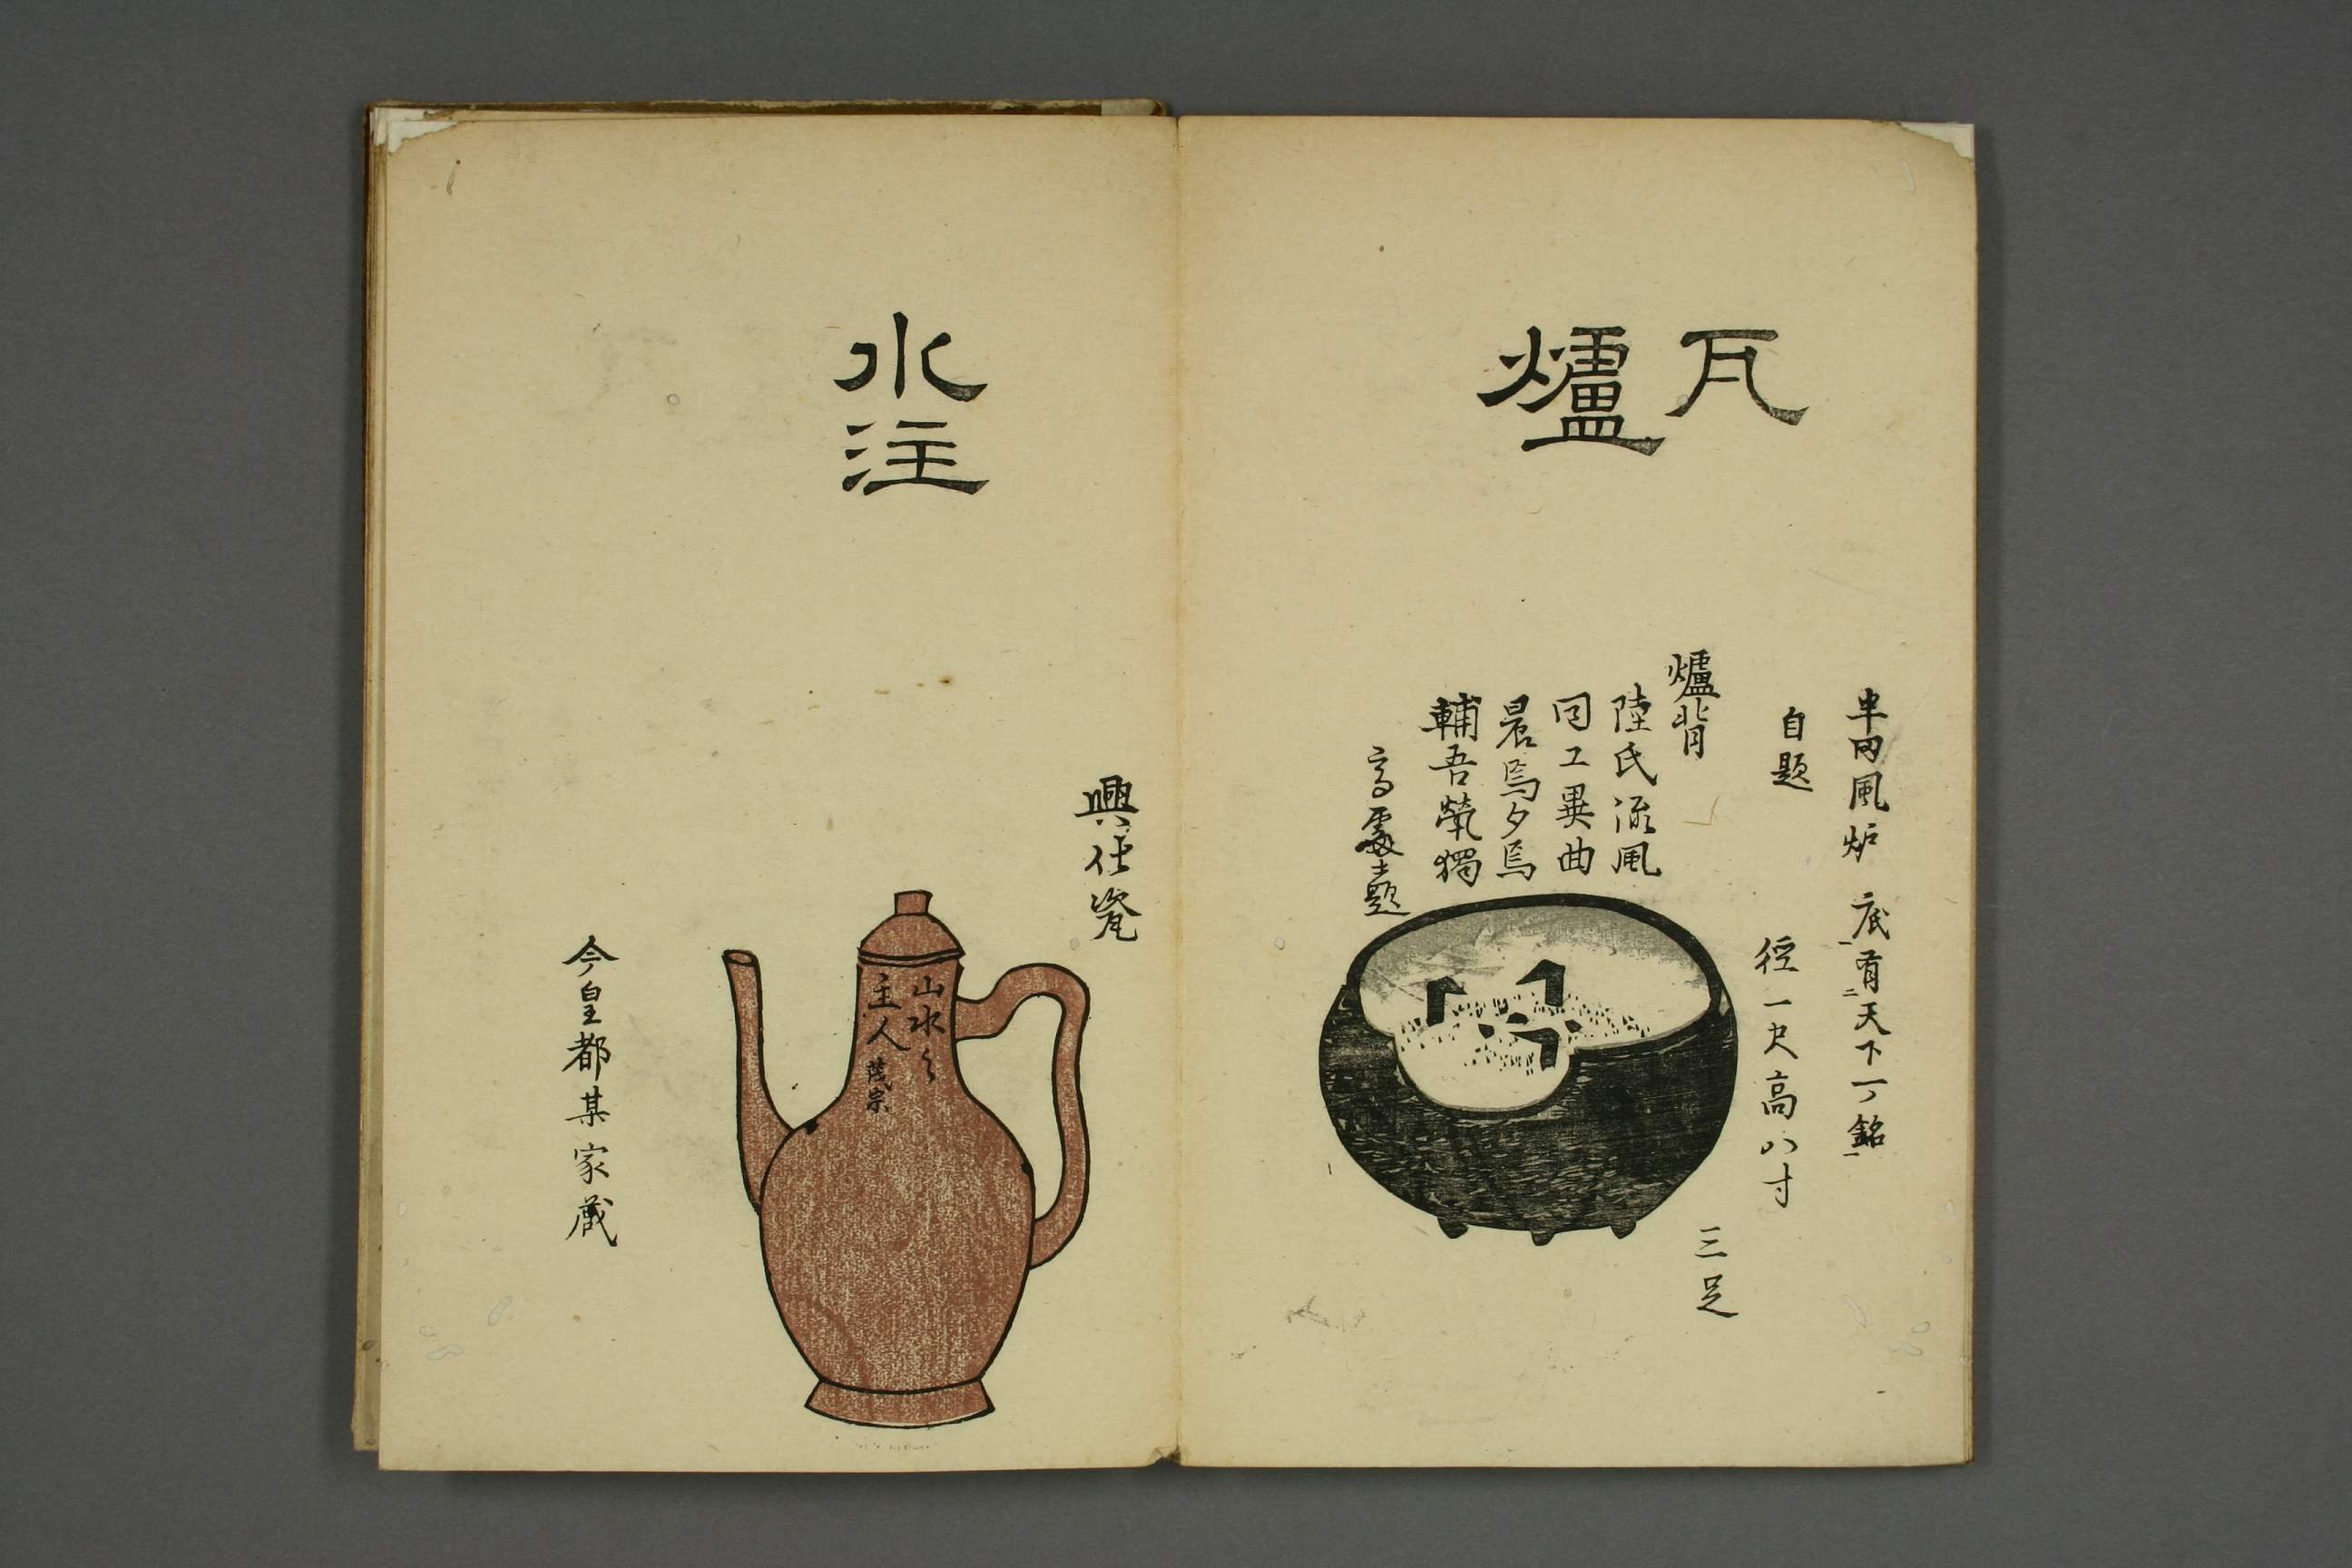 瓦
爐
風炉 底有天下一ノ銘
自題
徑一尺高八寸
三足
爐背
陸氏流風
同工異曲
晨焉夕焉
輔吾煢獨
高處士題
水注
興 瓷
山水之
主人 茂宗
今皇都某家蔵